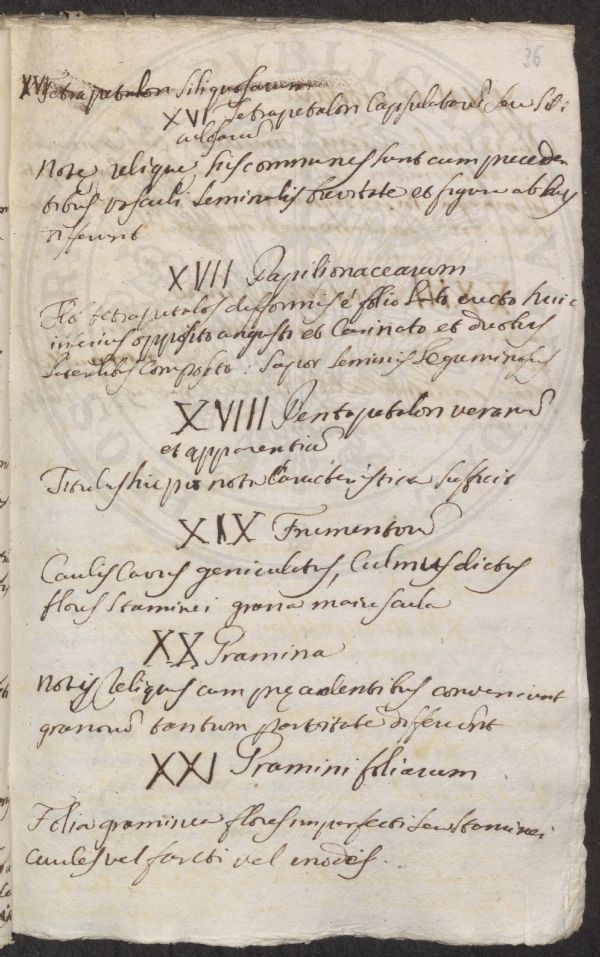 36
XVI Tetrapetalon siliquosarum
XVI Tetrapetalon Capsulatarū seu Sili
culosarū
Notę reliquę his communes sunt cum pręceden
tibus vasculi seminalis brevitate et figura ab his
differunt
XVII Papilionacearum
Flos tetrapetalos difformis é folio lato erecto huic
inferius opposito angusto et Carinato et duobus
lateralibus Composito. Sapor seminis leguminosus
XVIII Pentapetalon verarū
et apparentiū
Titulus hic pro nota Caracteristica sufficit
XIX Frumentorū
Caulis Cavus geniculatus, Culmus dictus
flores Staminei grana maiuscula
XX Gramina
Notis Reliquis cum pręcedentibus conveniunt
granorū tantum parvitate differunt
XXI Graminifoliarum
Folia graminea flores imperfecti seu staminei
caules vel farcti vel enodes.